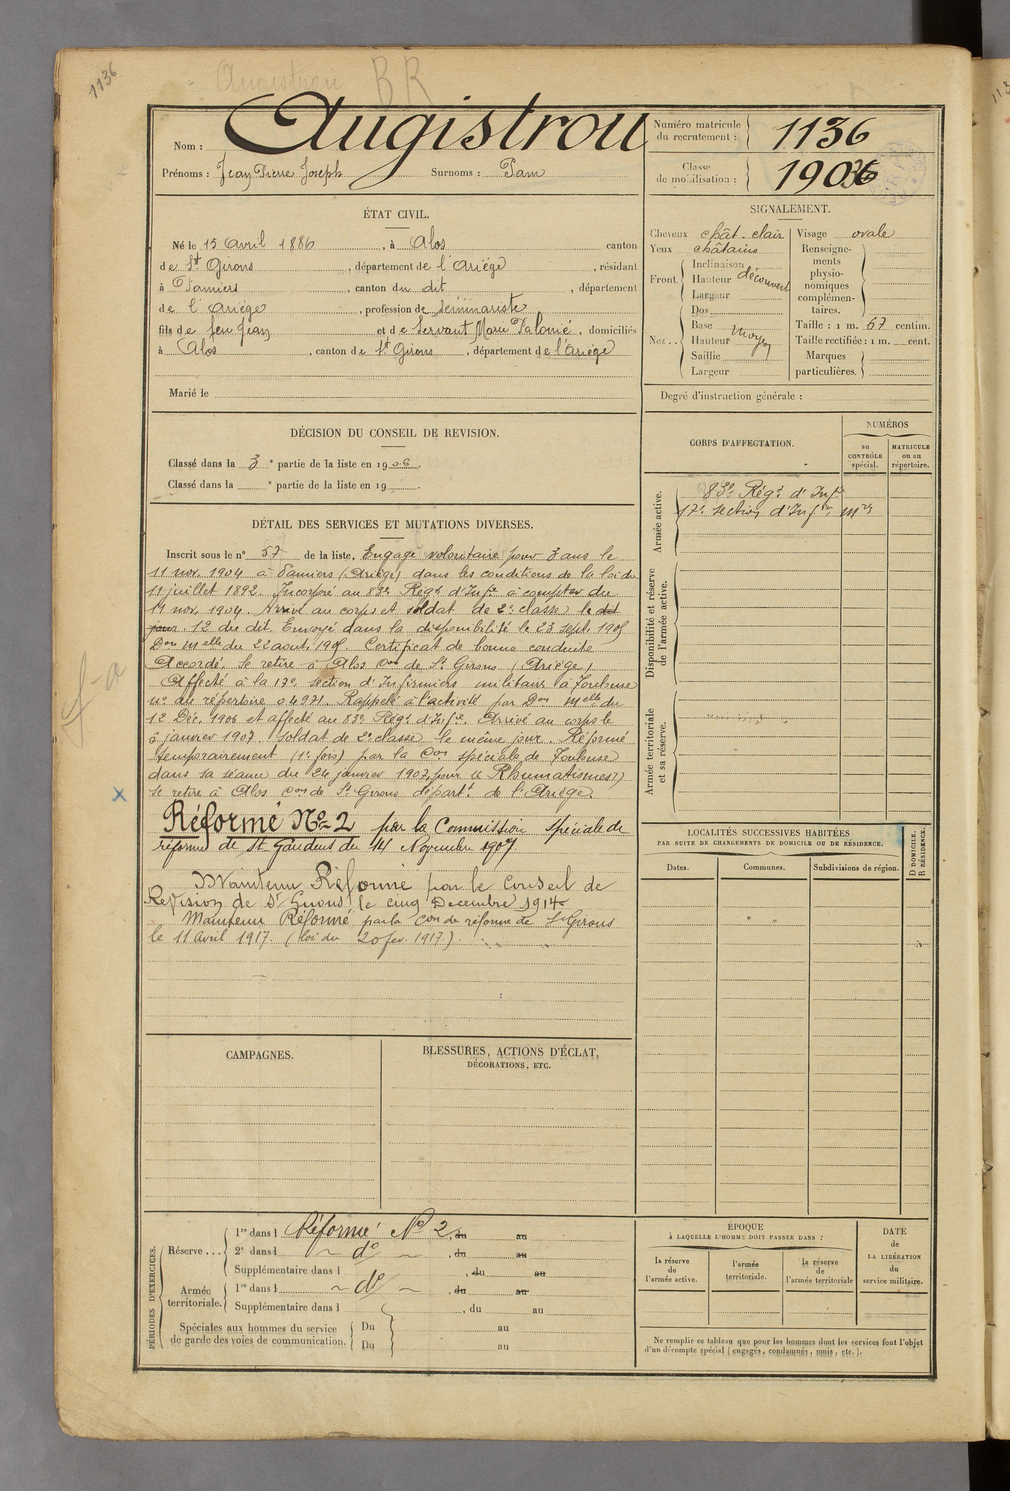 1136
Augistrou BR
Nom : Augistrou
Prénoms : Jean Pierre Joseph Surnoms : Pam
Numéro matricule du recrutement : 1136
Classe de mobilisation : 1906
ÉTAT CIVIL.
Né le 15 Avril 1886, à Alos canton
de St Girons, département de l'Ariège, résidant
à Pamiers, canton du dit, département
de l'Ariège, profession de Séminariste
fils de feu Jean et de Servant Marie Palonié, domiciliés
à Alos, canton de St Girons, département de l'Ariège
Marié le
SIGNALEMENT.
Cheveux chât-clair
Yeux châtains
Front. Inclinaison
Hauteur découvert
Largeur
Nez.. Dos
Base
Hauteur moyen
Saillie
Largeur
Visage ovale
Renseigne-
ments
physio-
nomiques
complémen-
taires.
Taille : 1 m. 67 centim.
Taille rectifiée : 1 m. cent.
Marques
particulières.
Degré d'instruction générale :
DÉCISION DU CONSEIL DE REVISION.
Classé dans la 3e partie de la liste en 1906.
Classé dans la e partie de la liste en 19 .
CORPS D'AFFECTATION.
NUMÉROS
au CONTRÔLE spécial.
MATRICULE ou au répertoire.
Armée active.
83e Régt d'Infie
17e section d'Infirs mres
Disponibilité et réserve de l'armée active.
Armée territoriale et sa réserve.
DÉTAIL DES SERVICES ET MUTATIONS DIVERSES.
Inscrit sous le n° 57 de la liste. Engagé volontaire pour 3 ans le
11 nov. 1904 à Pamiers (Ariège) dans les conditions de la loi du
11 juillet 1892. Incorporé au 83e Régt d'Infie à compter du
11 nov. 1904. Arrivé au corps et soldat de 2e classe le dit
jour. 12 du dit. Envoyé dans la disponibilité le 23 sept. 1905
Don Melle du 22 août 1905. Certificat de bonne conduite
Accordé. Se retire à Alos Con de St Girons (Ariège)
Affecté à la 17e section d'Infirmiers militaires à Toulouse
n° au répertoire 04971. Rappelé à l'activité par Don Melle du
12 Déc. 1906 et affecté au 83e Régt d'Infie. Arrivé au corps le
3 janvier 1907. Soldat de 2e classe le même jour. Réformé
temporairement (1e fois) par la Con spéciale de Toulouse
dans sa séance du 24 janvier 1907 pour « Rhumatismes »
Se retire à Alos Con de St Girons départt de l'Ariège.
Réformé No 2 par la Commission spéciale de
réforme de St Gaudens du 14 Novembre 1907
Maintenu Réformé par le Conseil de
Revision de St Girons le cinq Decembre 1914
Maintenu Réformé par la Con de réforme de St Girons
le 11 Avril 1917. (loi du 20 fev. 1917.)
LOCALITÉS SUCCESSIVES HABITÉES
PAR SUITE DE CHANGEMENTS DE DOMICILE OU DE RÉSIDENCE.
Dates.
Communes.
Subdivisions de région.
D DOMICILE.
R RÉSIDENCE.
CAMPAGNES.
BLESSURES, ACTIONS D'ÉCLAT,
DÉCORATIONS, ETC.
PÉRIODES D'EXERCICES.
Réserve... 1re dans l Réformé No 2, du au
2e dans l - do -, du au
Supplémentaire dans l , du au
Armée territoriale. 1re dans l - do -, du au
Supplémentaire dans l , du au
Spéciales aux hommes du service Du au
de garde des voies de communication. Du au
ÉPOQUE
À LAQUELLE L'HOMME DOIT PASSER DANS :
la réserve de l'armée active.
l'armée territoriale.
la réserve de l'armée territoriale
DATE de LA LIBÉRATION du service militaire.
Ne remplir ce tableau que pour les hommes dont les services font l'objet
d'un décompte spécial (engagés, condamnés, omis, etc.).